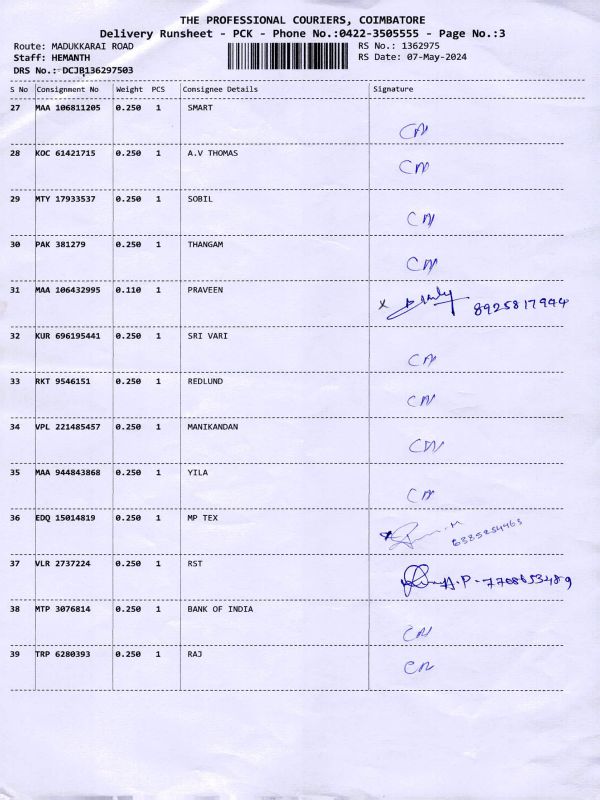 THE PROFESSIONAL COURIERS, COIMBATORE
Delivery Runsheet - PCK - Phone No.:0422-3505555 - Page No.:3
Route: MADUKKARAI ROAD RS No.: 1362975
Staff: HEMANTH RS Date: 07-May-2024
DRS No.: DCJB136297503
S No Consignment No Weight PCS Consignee Details Signature
27 MAA 106811205 0.250 1 SMART
CN
28 KOC 61421715 0.250 1 A.V THOMAS
CN
29 MTY 17933537 0.250 1 SOBIL
CN
30 PAK 381279 0.250 1 THANGAM
CN
31 MAA 106432995 0.110 1 PRAVEEN
8925817944
32 KUR 696195441 0.250 1 SRI VARI
CN
33 RKT 9546151 0.250 1 REDLUND
CN
34 VPL 221485457 0.250 1 MANIKANDAN
CN
35 MAA 944843868 0.250 1 YILA
CN
36 EDQ 15014819 0.250 1 MP TEX
37 VLR 2737224 0.250 1 RST
38 MTP 3076814 0.250 1 BANK OF INDIA
CN
39 TRP 6280393 0.250 1 RAJ
CN